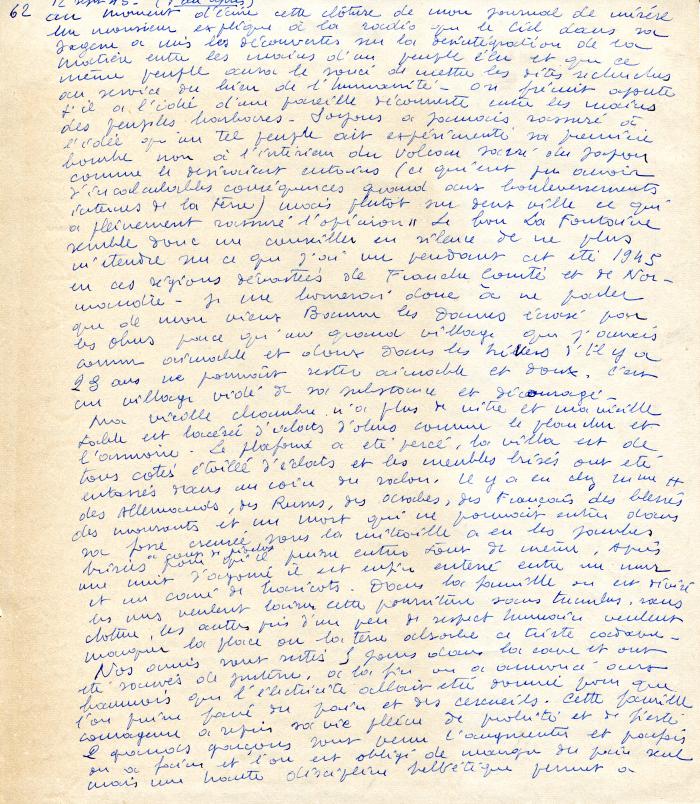 62 12 sept 45 - (1 an après)
au moment d'écrire cette clôture de mon journal de misère
un monsieur explique à la radio que le Ciel dans sa
sagesse a mis les découvertes sur la désintégration de la
matière entre les mains d'un peuple élu et que ce
même peuple aura le souci de mettre les dites recherches
au service du bien de l'humanité - On frémit ajoute
t'il à l'idée d'une pareille découverte entre les mains
des peuples barbares - Soyons à jamais rassuré à
l'idée qu'un tel peuple ait expérimenté sa première
bombe non à l'intérieur du volcan sacré du Japon
comme le désiraient certains (ce qui eut pu avoir
d'incalculables conséquences quand aux bouleversements
internes de la Terre) mais plutôt sur deux ville ce qui
a pleinement rassuré l'opinion" Le bon La Fontaine
semble donc un conseiller en silence de ne plus
m'étendre sur ce que j'ai vu pendant cet été 1945
en ces régions dévastées de Franche Comté et de Nor-
mandie - Je me bornerai donc à ne parler
que de mon vieux Baume les Dames écrasé par
les obus parce qu'un grand village que j'aurais
connu aimable et doux dans les hivers d'il y a
23 ans ne pourrait rester aimable et doux, c'est
un village vidé de sa substance et découragé -
Ma vieille chambre n'a plus de vitre et ma vieille
table est lacérée d'éclats d'obus comme le plancher et
l'armoire. Le plafond a été percé, la villa est de
tous cotés étoilée d'éclats et les meubles brisés ont été
entassés dans un coin du salon. Il y a eu chez mme H
des Allemands, des Russes, des arabes, des Français des blessés
des mourants et un mort qui ne pouvait entrer dans
sa fosse creusée sous la mitraille a eu les jambes
brisées à coups de pioches pour qu'il puisse entrer tout de même. Après
une nuit d'agonie il est enfin enterré entre un mur
et un carré de haricots. Dans la famille on est divisé
les uns veulent laisser cette pourriture sans tumulus, sans
clôture, les autres pris d'un peu de respect humain veulent
marquer la place où la terre absorbe ce triste cadavre -
Nos amis sont restés 5 jours dans la cave et ont
été sauvés de justesse, à la fin on a annoncé aux
baumois que l'électricité allait être donnée pour que
l'on puisse faire du pain et des cercueils. Cette famille
courageuse a repris sa vie pleine de probité et de fierté
2 grands garçons sont venu l'augmenter et parfois
on a faim et l'on est obligé de manger du pain seul
mais une haute discipline helvétique permet à